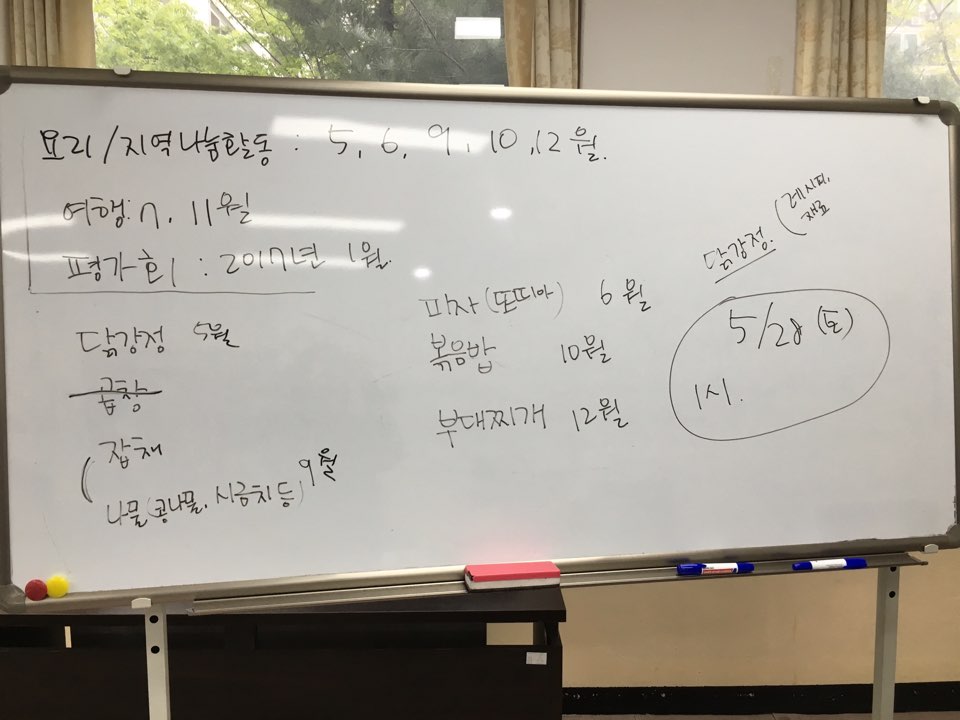 요리/지역나눔활동 : 5, 6, 9, 10, 12월.
여행: 7, 11월
평가회 : 2017년 1월.
닭강정 5월
곱창
(잡채
나물(콩나물, 시금치 등) 9월
피자(또띠아) 6월
볶음밥 10월
부대찌개 12월
닭강정. (레시피,
재료
5/28 (토)
1시.